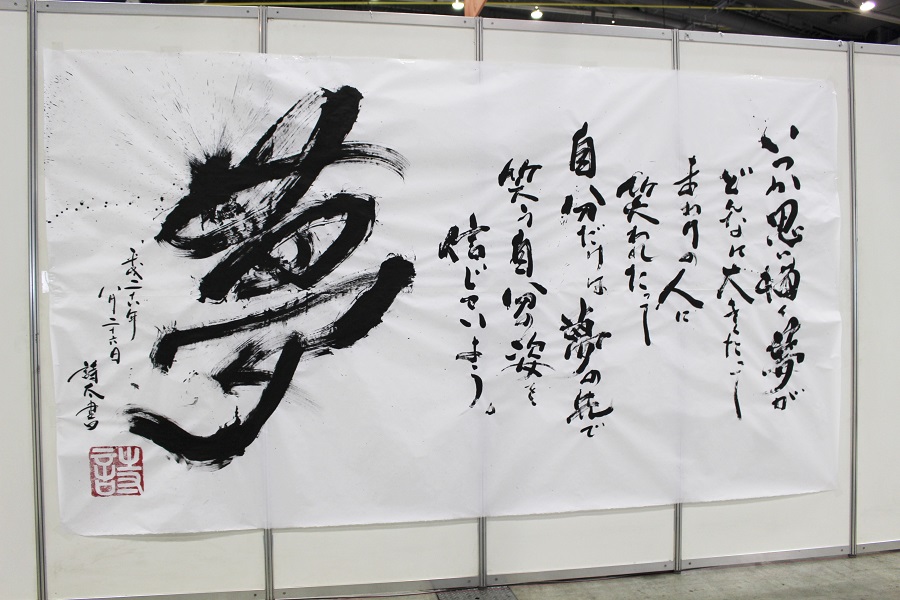 いつか思い描く夢が
どんなに大きくたって
まわりの人に
笑われたって
自分だけは夢の先で
笑う自分の姿を
信じていよう。
夢
平成二十六年
八月二十六日
詩太書
詩